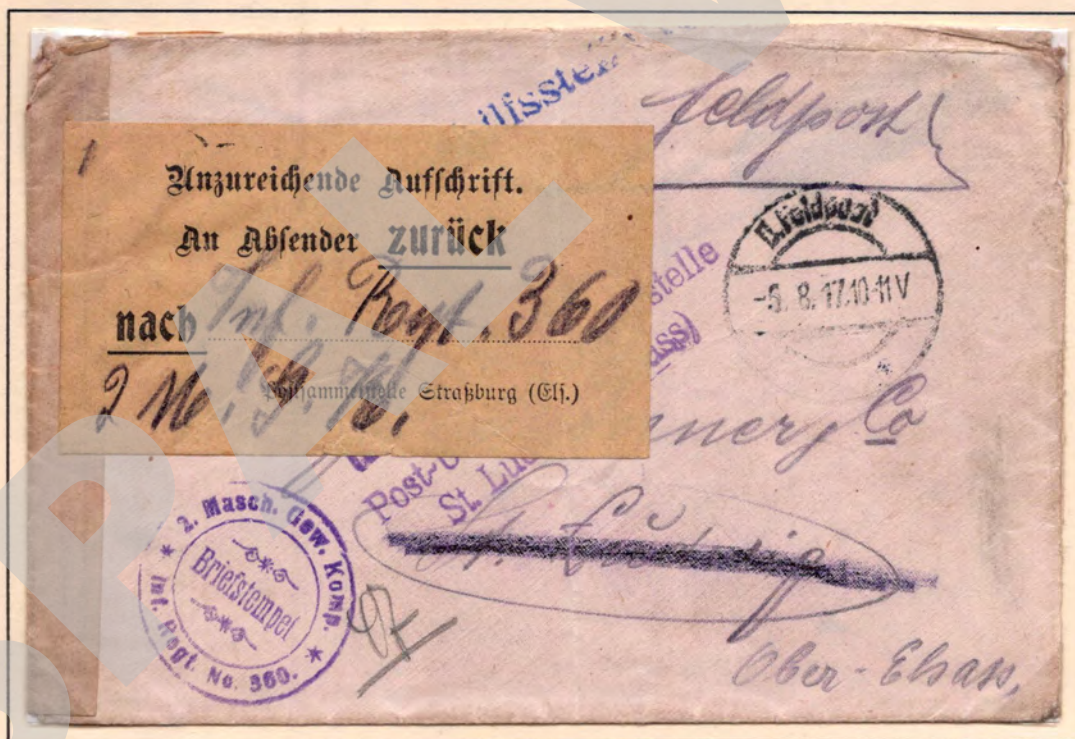 Feldpost
Unzureichende Aufschrift.
An Absender zurück
nach Inf. Regt. 360
2 M. G. K.
Postsammelstelle Straßburg (Els.)
D. Feldpost
-5. 8. 17. 10-11 V
stelle
ass)
Co
Post-
St. Lu
St. Ludwig
Ober-Elsass,
2. Masch. Gew. Komp.
Briefstempel
Inf. Regt. No. 360.